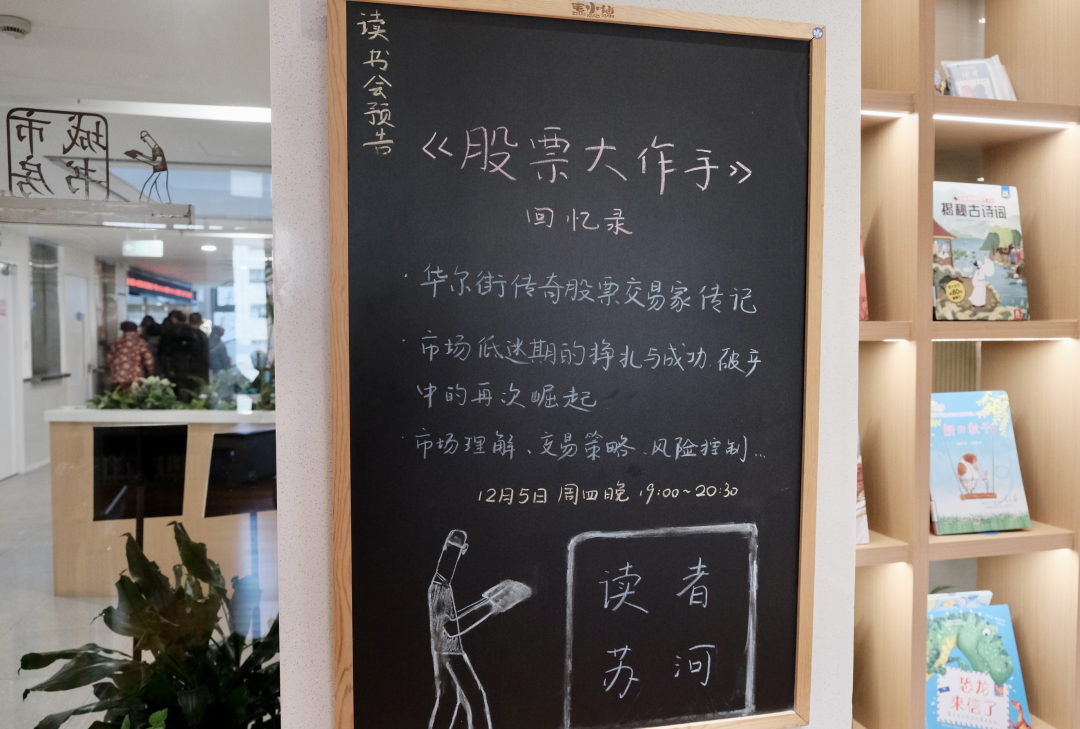 读书会预告
《股票大作手》
回忆录
· 华尔街传奇股票交易家传记
· 市场低迷期的挣扎与成功.破产
中的再次崛起
· 市场理解、交易策略、风险控制...
12月5日 周四晚 19:00~20:30
读者
苏河
城市
书房
揭秘古诗词
恐龙
来信了